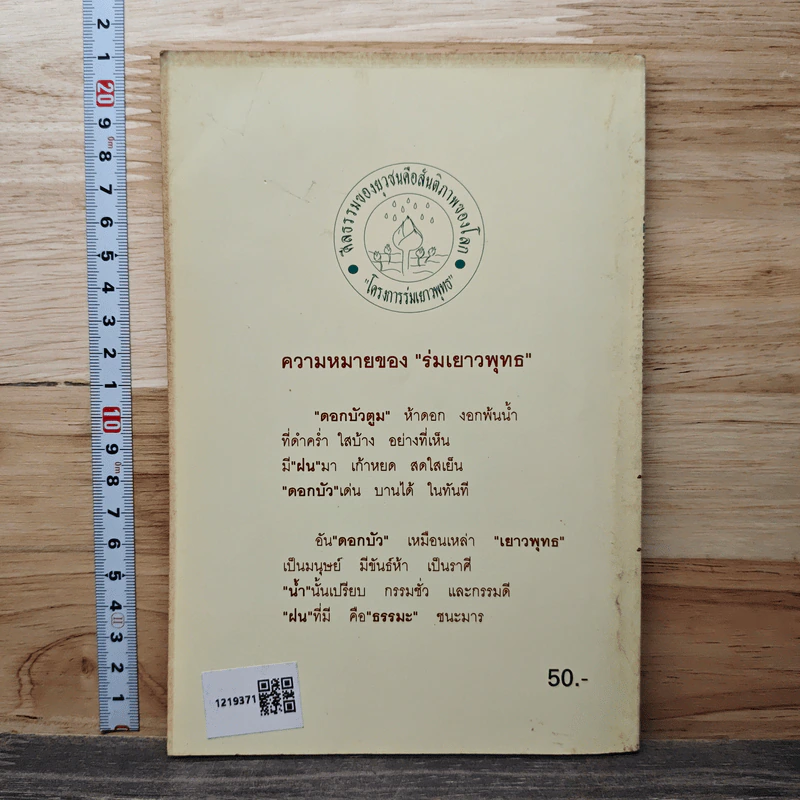 ศีลธรรมของยุวชนคือสันติภาพของโลก
"โครงการร่มเยาวพุทธ"
ความหมายของ "ร่มเยาวพุทธ"
"ดอกบัวตูม" ห้าดอก งอกพ้นน้ำ
ที่ดำคร่ำ ใสบ้าง อย่างที่เห็น
มี"ฝน"มา เก้าหยด สดใสเย็น
"ดอกบัว"เด่น บานได้ ในทันที
อัน"ดอกบัว" เหมือนเหล่า "เยาวพุทธ"
เป็นมนุษย์ มีขันธ์ห้า เป็นราศี
"น้ำ"นั้นเปรียบ กรรมชั่ว และกรรมดี
"ฝน"ที่มี คือ"ธรรมะ" ชนะมาร
50.-
1219371
2
1
20
9
8
7
6
5
4
3
2
1
10
9
8
7
6
5
4
3
2
1